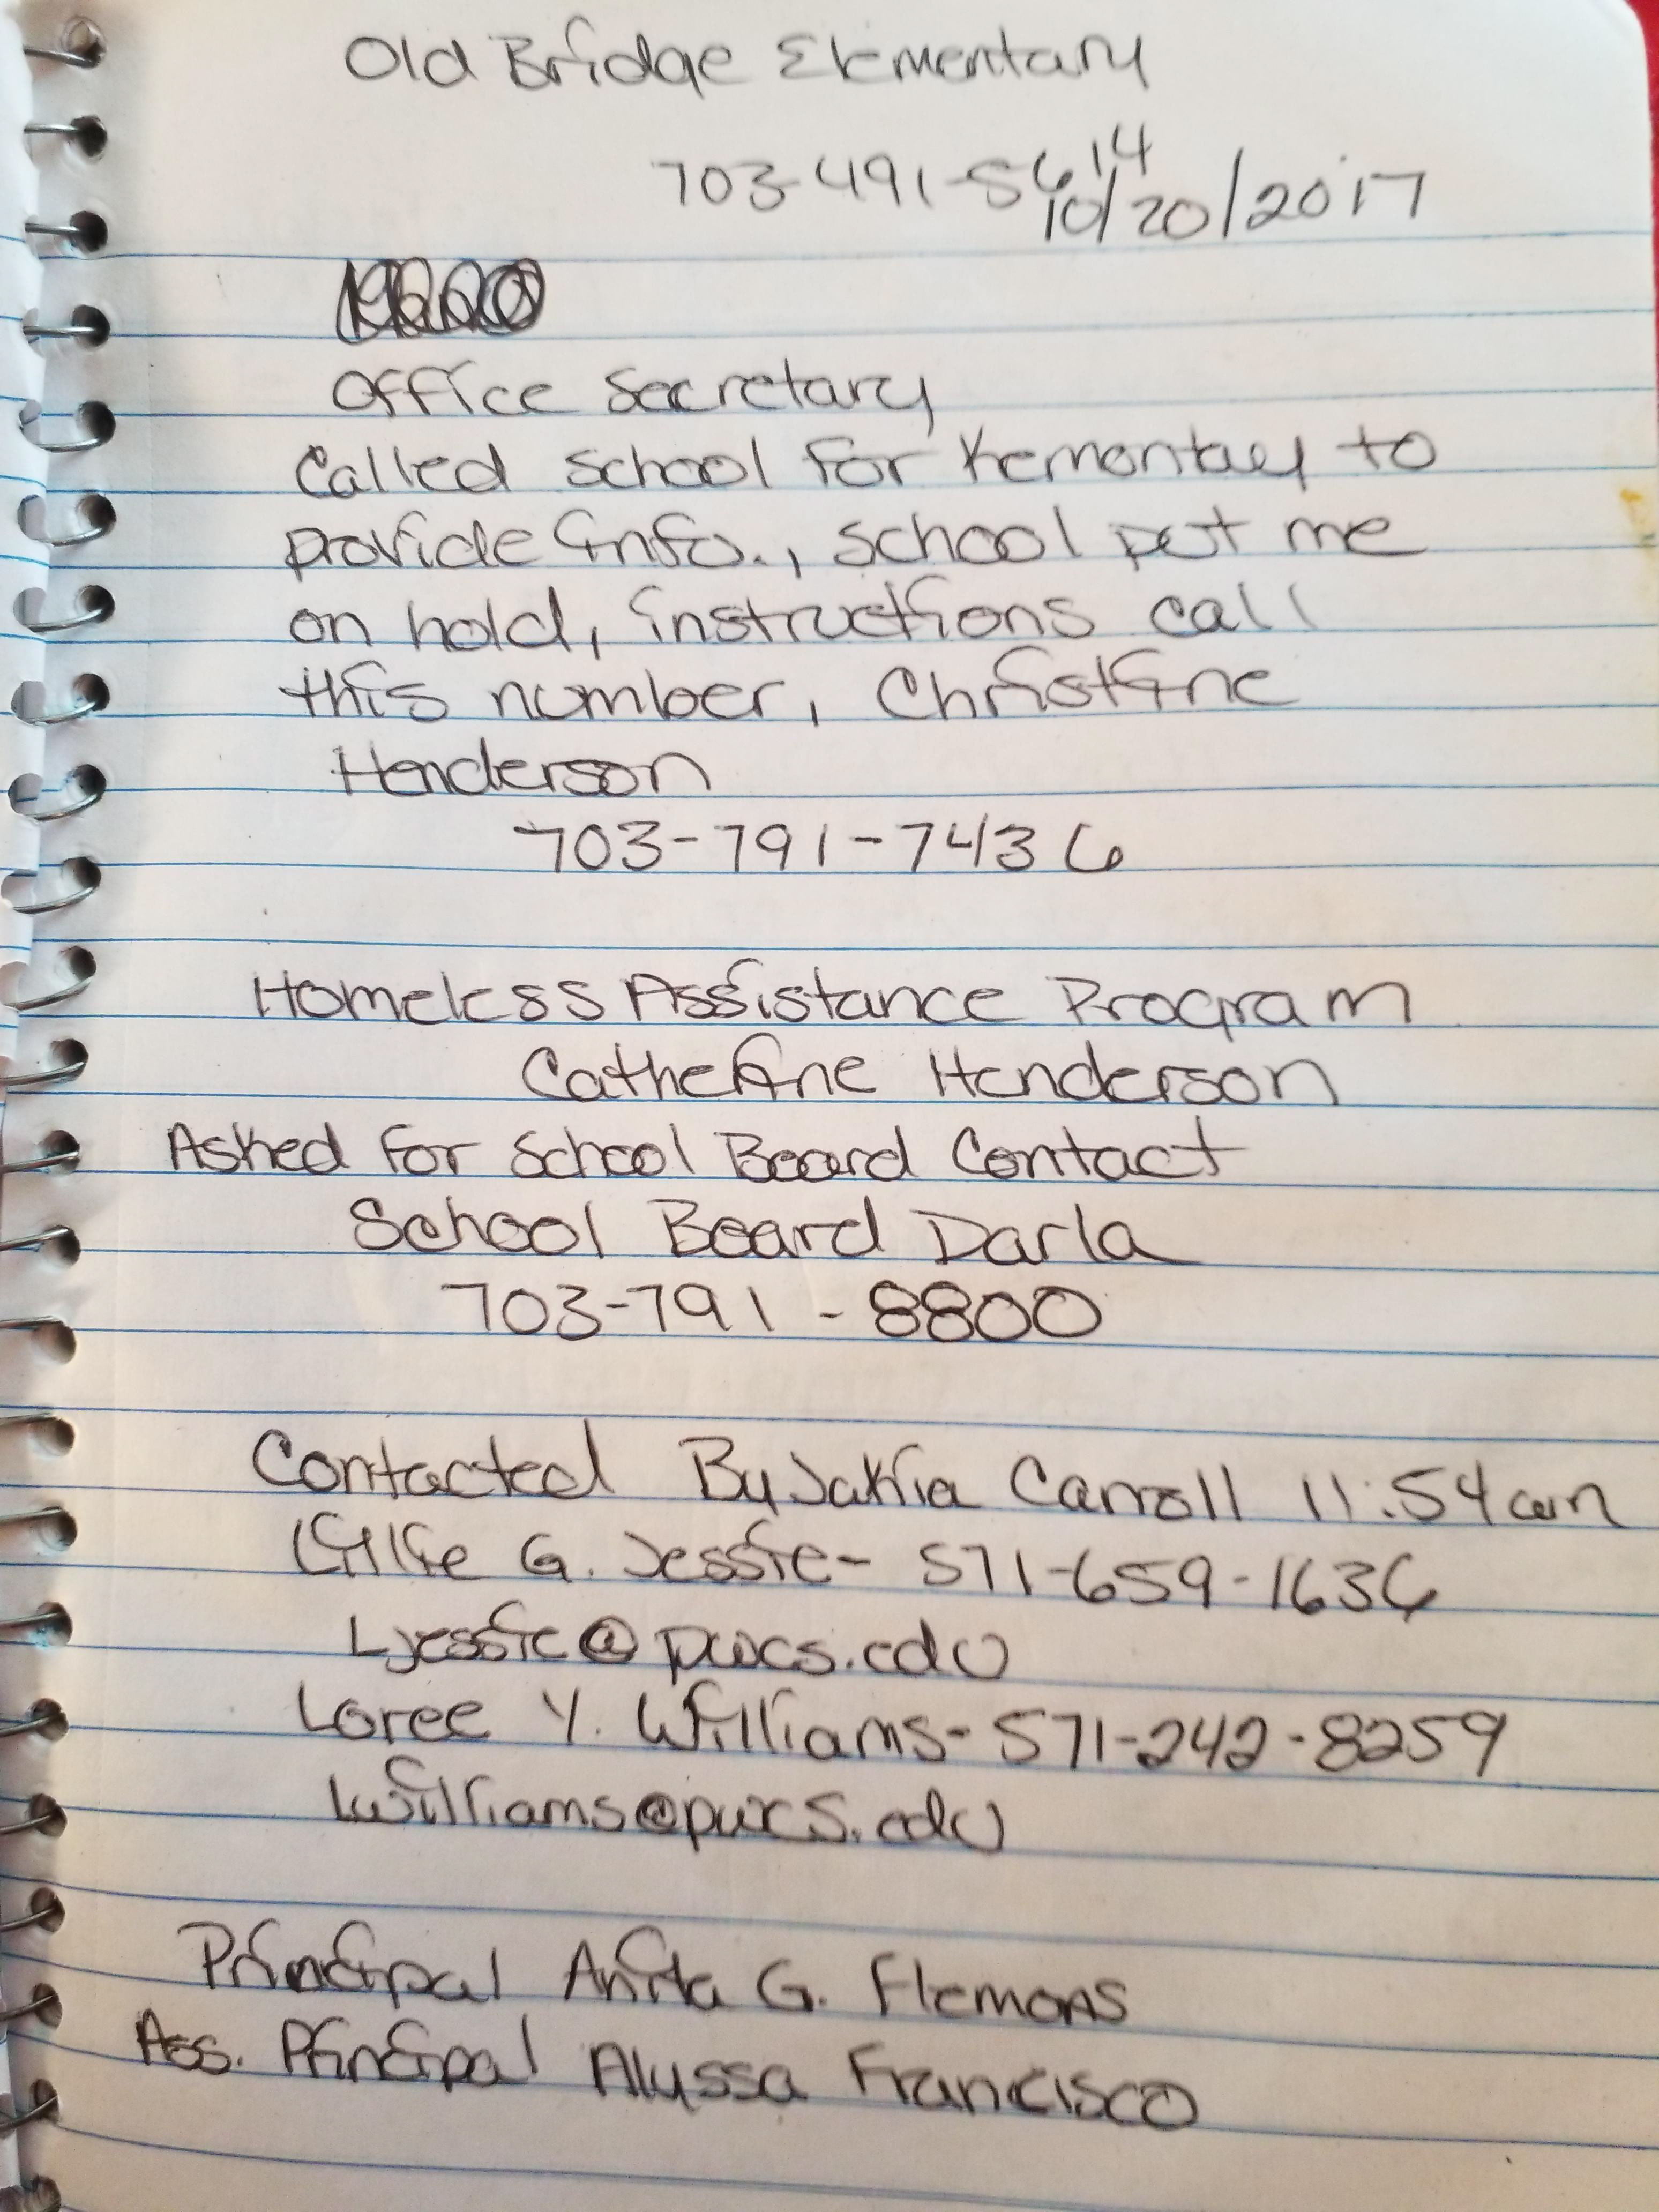 Old Bridge Elementary
703-491-5614
10/20/2017
Office Secretary
Called school for Kemontaey to
provide info., school put me
on hold, instructions call
this number, Christine
Henderson
703-791-7436
Homeless Assistance Program
Catherine Henderson
Asked for School Board Contact
School Board Darla
703-791-8800
Contacted By Jakia Carroll 11:54am
Lillie G. Jessie- 571-659-1636
Ljessie@pwcs.edu
Loree Y. Williams- 571-242-8259
lwilliams@pwcs.edu
Principal Anita G. Flemons
Ass. Principal Alyssa Francisco